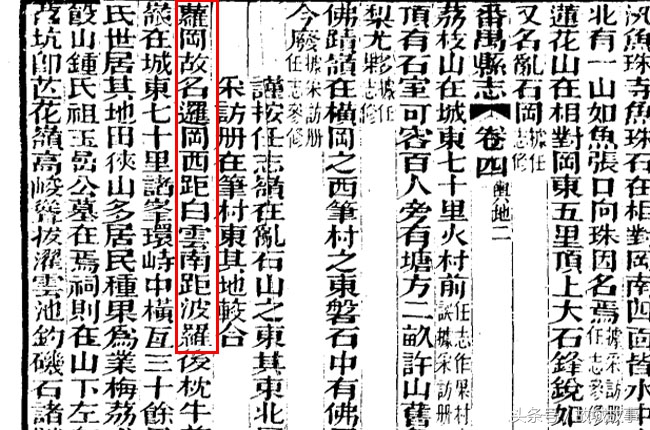 魚珠寺魚珠石在相對岡南四面皆水中
北有一山如魚張口向珠因名焉據采訪册任志參修
蓮花山在相對岡東五里頂上大石鋒銳如
又名亂石岡據任志修
番禺縣志 卷四 輿地二
荔枝山在城東七十里火村前任志作果村誤據采訪册
頂有石室可容百人旁有塘方二畝許山舊
梨尤夥據任志修
佛蹟嶺在橫岡之西筆村之東磐石中有佛
今廢據采訪册任志參修
謹按任志嶺在亂石山之東其東北
采訪册在筆村東其地較合
蘿岡故名邏岡西距白雲南距波羅後枕牛
嶺在城東七十里諸峯環峙中橫亙三十餘
民世居其地田狹山多居民種果爲業梅荔
殿山鍾氏祖玉嵒公墓在焉祠則在山下左
坑卽芒花嶺高峻聳拔濯雲池釣磯石諸
头条号